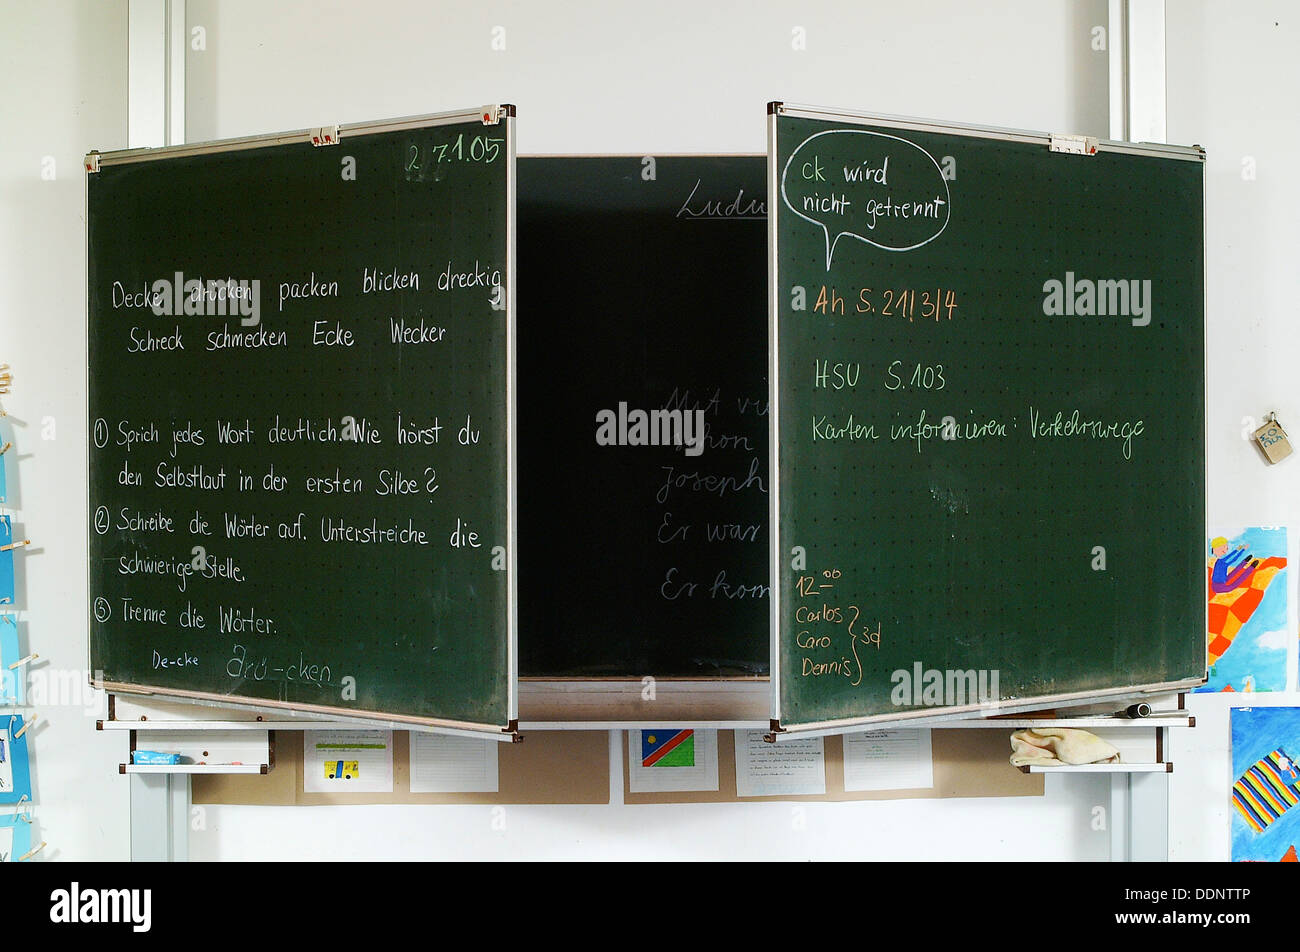 27.1.05
Decke drücken packen blicken dreckig
Schreck schmecken Ecke Wecker
① Sprich jedes Wort deutlich. Wie hörst du
den Selbstlaut in der ersten Silbe?
② Schreibe die Wörter auf. Unterstreiche die
schwierige Stelle.
③ Trenne die Wörter.
De-cke drü-cken
Ludu
Mit vi
schon
Joseph
Er war
Er kom
ck wird
nicht getrennt
Ah S. 21/3/4
HSU S. 103
Karten informieren: Verkehrswege
12 00
Carlos
Caro } 3d
Dennis
alamy
DDNTTP
www.alamy.com